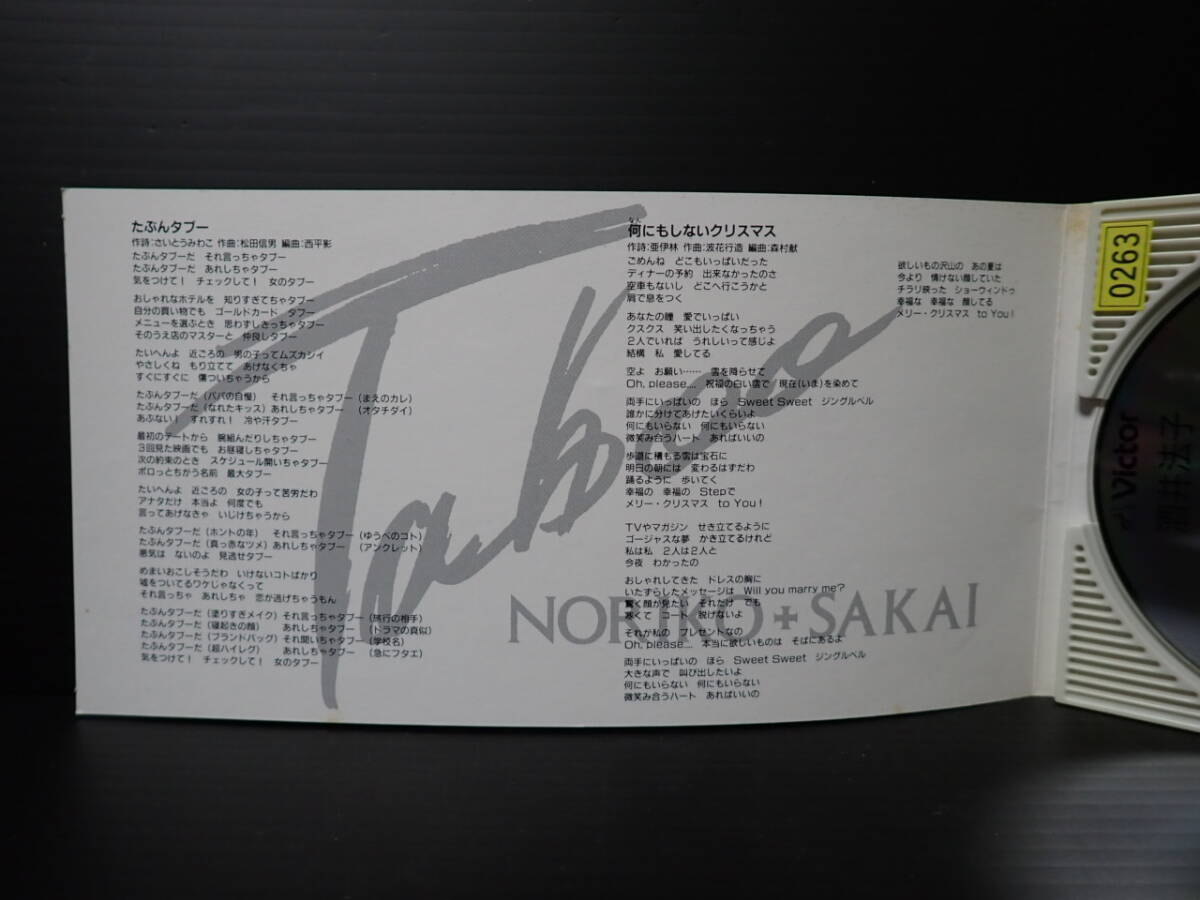 たぶんタブー
作詩:さいとうみわこ 作曲:松田信男 編曲:西平彰
たぶんタブーだ それ言っちゃタブー
たぶんタブーだ あれしちゃタブー
気をつけて! チェックして! 女のタブー
おしゃれなホテルを 知りすぎてちゃタブー
自分の買い物でも ゴールドカード タブー
メニューを選ぶとき 思わずしきっちゃタブー
そのうえ店のマスターと 仲良しタブー
たいへんよ 近ごろの 男の子ってムズカシイ
やさしくね もり立てて あげなくちゃ
すぐにすぐに 傷ついちゃうから
たぶんタブーだ (パパの自慢) それ言っちゃタブー (まえのカレ)
たぶんタブーだ (なれたキッス) あれしちゃタブー (オタチダイ)
あぶない! すれすれ! 冷や汗タブー
最初のデートから 腕組んだりしちゃタブー
3回見た映画でも お昼寝しちゃタブー
次の約束のとき スケジュール開いちゃタブー
ポロっとちがう名前 最大タブー
たいへんよ 近ごろの 女の子って苦労だわ
アナタだけ 本当よ 何度でも
言ってあげなきゃ いじけちゃうから
たぶんタブーだ (ホントの年) それ言っちゃタブー (ゆうべのコト)
たぶんタブーだ (真っ赤なツメ) あれしちゃタブー (アンクレット)
悪気は ないのよ 見逃せタブー
めまいおこしそうだわ いけないコトばかり
嘘をついてるワケじゃなくって
それ言っちゃ あれしちゃ 恋が逃げちゃうもん
たぶんタブーだ (塗りすぎメイク) それ言っちゃタブー (旅行の相手)
たぶんタブーだ (寝起きの顔) あれしちゃタブー (ドラマの真似)
たぶんタブーだ (ブランドバッグ) それ聞いちゃタブー (学校名)
たぶんタブーだ (超ハイレグ) あれしちゃタブー (急にフタエ)
気をつけて! チェックして! 女のタブー
Taboo
NORIKO+SAKAI
なん
何にもしないクリスマス
作詩:亜伊林 作曲:波花行造 編曲:森村献
ごめんね どこもいっぱいだった
ディナーの予約 出来なかったのさ
空車もないし どこへ行こうかと
肩で息をつく
あなたの瞳 愛でいっぱい
クスクス 笑い出したくなっちゃう
2人でいれば うれしいって感じよ
結構 私 愛してる
空よ お願い…… 雪を降らせて
Oh, please.... 祝福の白い雪で 現在(いま)を染めて
両手にいっぱいの ほら Sweet Sweet ジングルベル
誰かに分けてあげたいくらいよ
何にもいらない 何にもいらない
微笑み合うハート あればいいの
歩道に積もる雪は宝石に
明日の朝には 変わるはずだわ
踊るように 歩いてく
幸福の 幸福の Stepで
メリー・クリスマス to You!
TVやマガジン せき立てるように
ゴージャスな夢 かき立てるけれど
私は私 2人は2人と
今夜 わかったの
おしゃれしてきた ドレスの胸に
いたずらしたメッセージは Will you marry me?
驚く顔が見たい それだけ でも
寒くて コート 脱げないよ
それが私の プレゼントなの
Oh, please.... 本当に欲しいものは そばにあるよ
両手にいっぱいの ほら Sweet Sweet ジングルベル
大きな声で 叫び出したいよ
何にもいらない 何にもいらない
微笑み合うハート あればいいの
欲しいもの沢山の あの夏は
今より 情けない顔していた
チラリ映った ショーウィンドゥ
幸福な 幸福な 顔してる
メリー・クリスマス to You!
0263
Victor
酒井法子